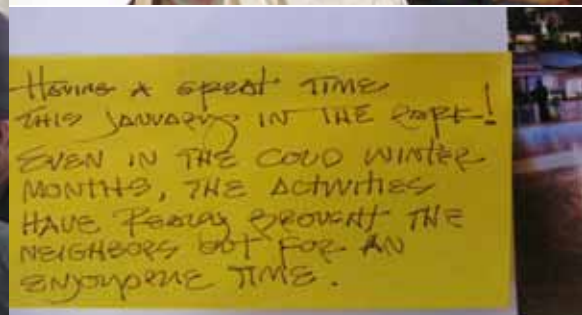 HAVING A GREAT TIME
THIS JANUARY IN THE PARK!
EVEN IN THE COLD WINTER
MONTHS, THE ACTIVITIES
HAVE REALLY BROUGHT THE
NEIGHBORS OUT FOR AN
ENJOYABLE TIME.